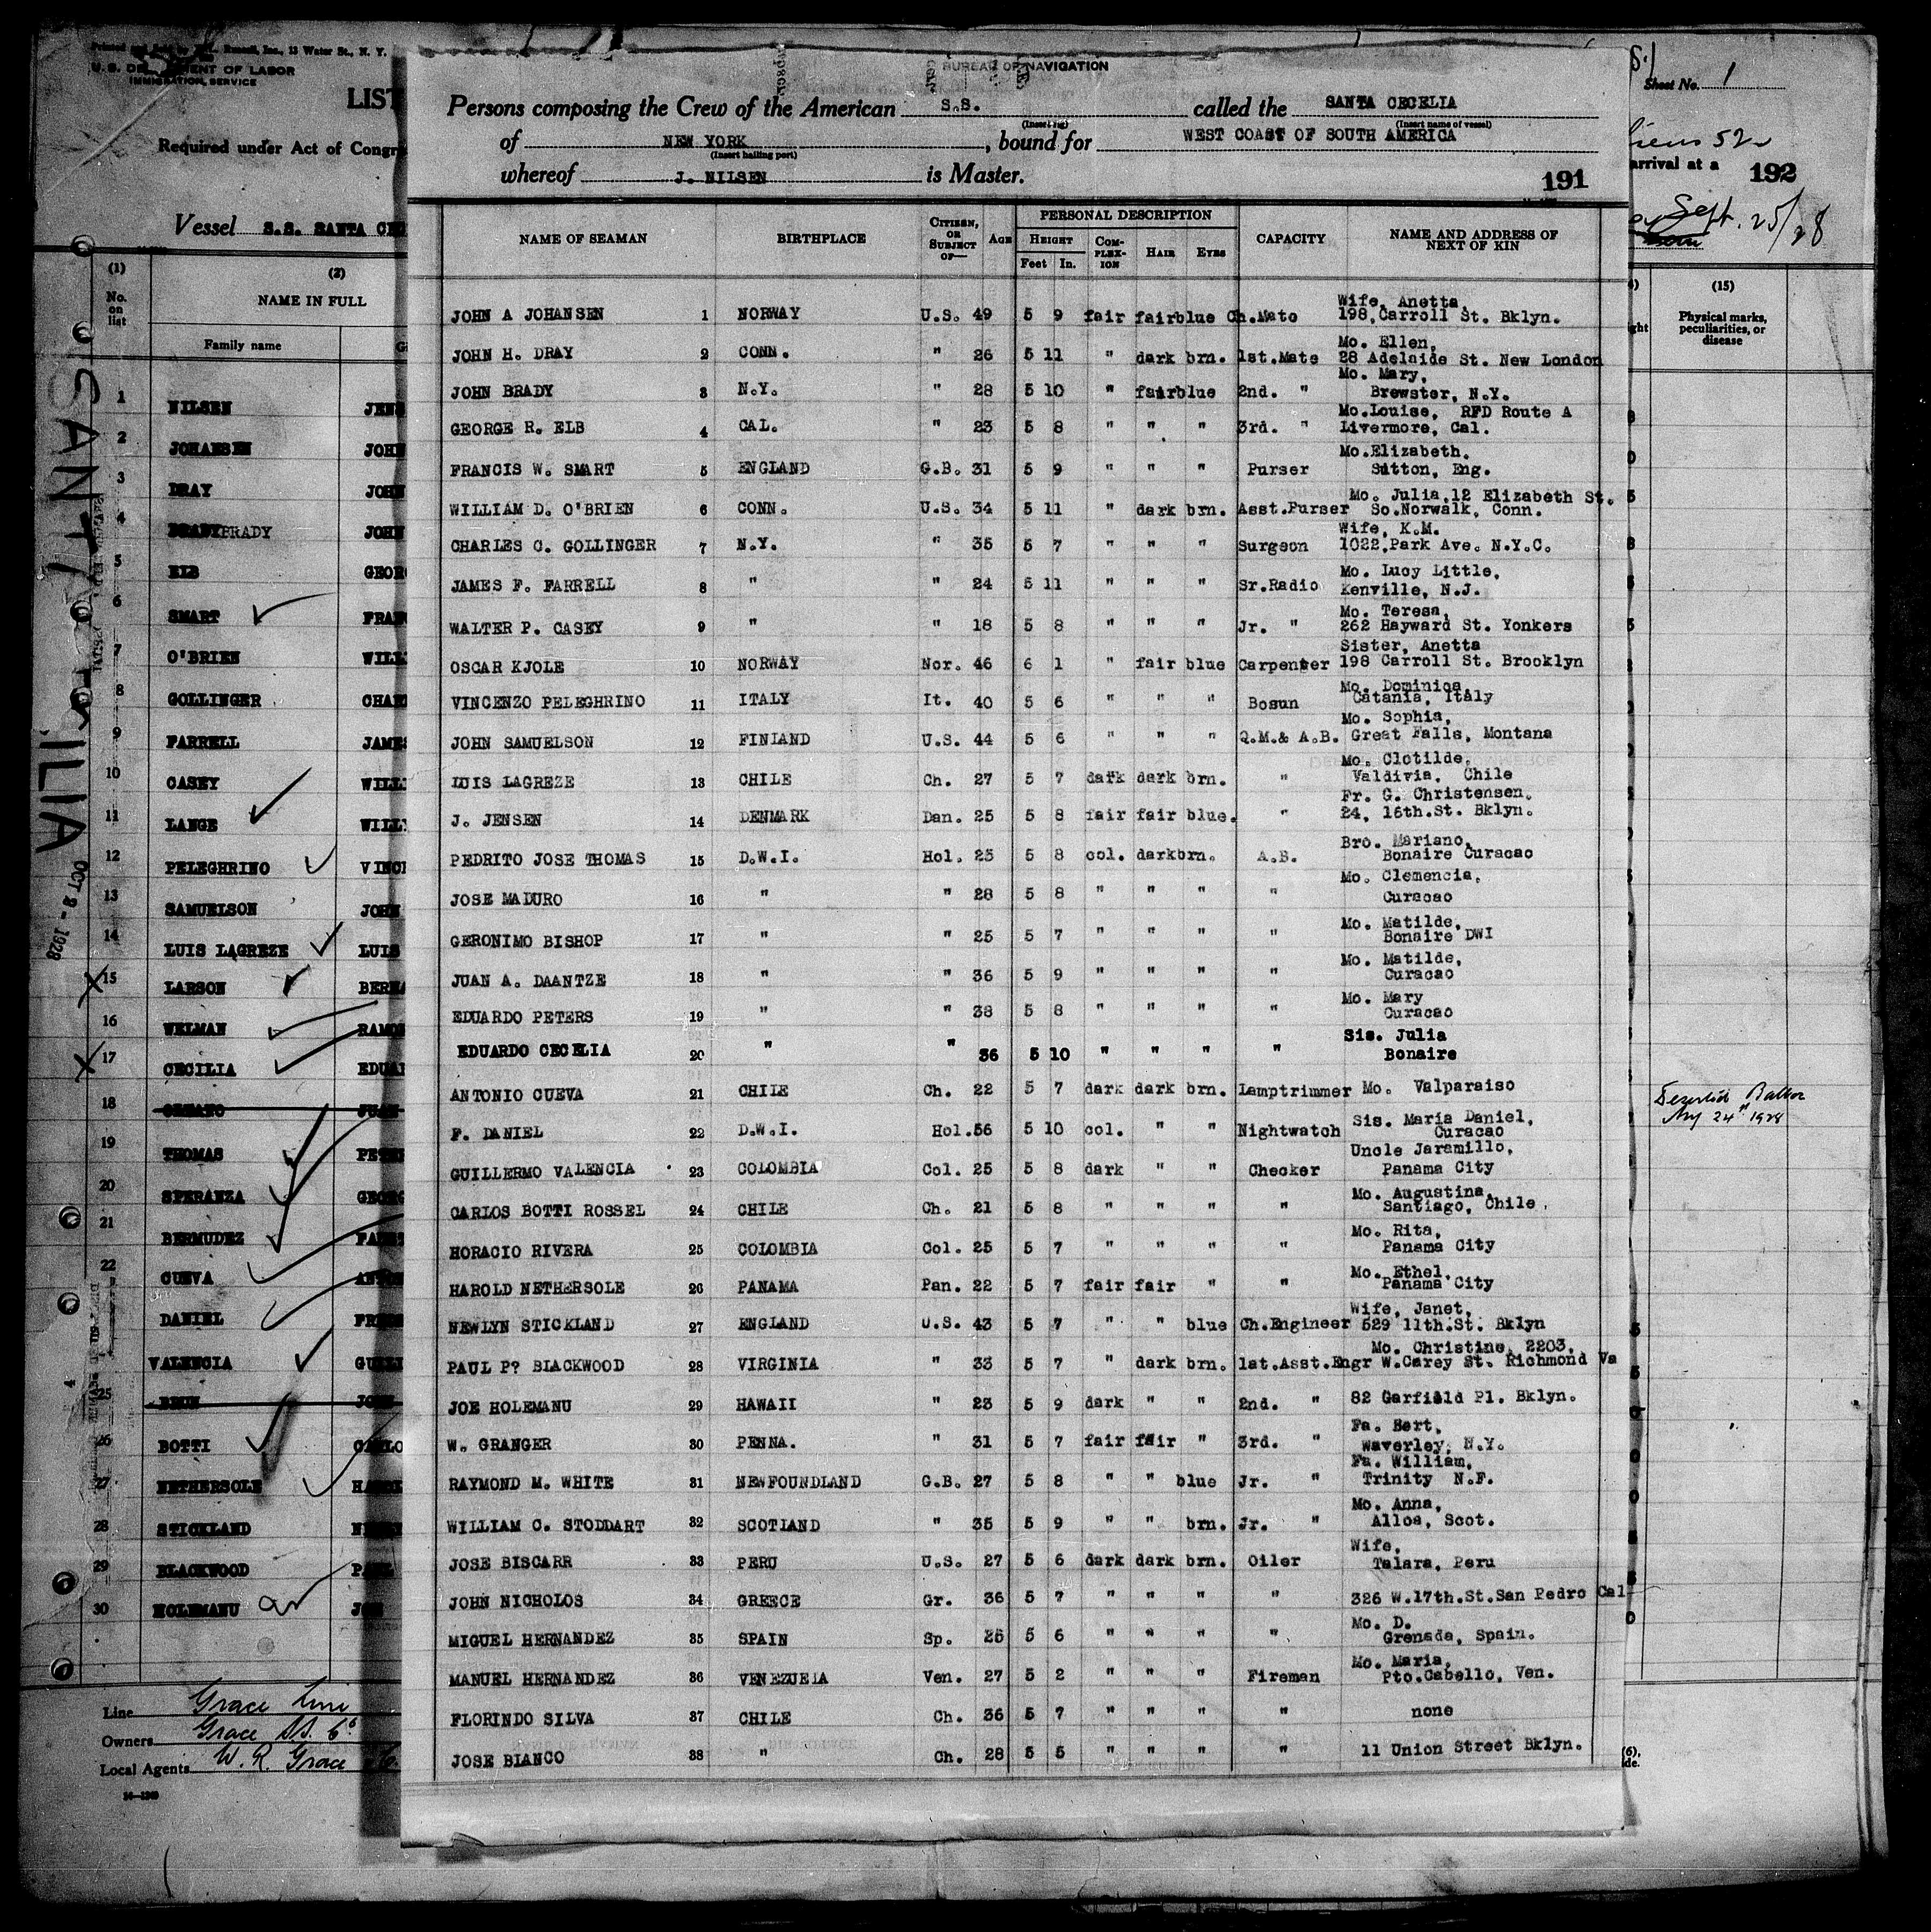 U.S. DEPARTMENT OF LABOR
IMMIGRATION SERVICE
LIST
Required under Act of Congr
Vessel S.S. SANTA CE
(1) (2)
No. on list
NAME IN FULL
Family name
1 NILSEN JENS
2 JOHANSEN JOHN
3 DRAY JOHN
4 BRADY JOHN
5 ELB GEORG
6 SMART FRAN
7 O'BRIEN WILL
8 GOLLINGER CHAR
9 FARRELL JAMES
10 CASEY WILL
11 LANGE WILL
12 PELEGHRINO VINC
13 SAMUELSON JOHN
14 LUIS LAGREZE LUIS
15 LARSON BERN
16 WELMAN RAMO
17 CECILIA EDUA
18 JUAN
19 THOMAS PETE
20 SPERANZA GEORG
21 BERMUDEZ
22 CUEVA ANTO
DANIEL FRE
VALENCIA GUILL
25 BRUN JOHN
26 BOTTI CARLO
27 NETHERSOLE HA
28 STICKLAND NE
29 BLACKWOOD PAUL
30 HOLEMANU JOE
Line Grace Line
Owners Grace SS. Co
Local Agents W. R. Grace & Co.
SANTA CECILIA
OCT 2 - 1928
BUREAU OF NAVIGATION
Persons composing the Crew of the American S.S. called the SANTA CECELIA
(Insert rig) (Insert name of vessel)
of NEW YORK, bound for WEST COAST OF SOUTH AMERICA
(Insert hailing port)
whereof J. NILSEN is Master. 191
NAME OF SEAMAN BIRTHPLACE CITIZEN, OR SUBJECT OF— AGE PERSONAL DESCRIPTION CAPACITY NAME AND ADDRESS OF NEXT OF KIN
HEIGHT COMPLEXION HAIR EYES
Feet In.
JOHN A JOHANSEN 1 NORWAY U.S. 49 5 9 fair fair blue Ch.Mate Wife, Anetta, 198,Carroll St. Bklyn.
JOHN H. DRAY 2 CONN. " 26 5 11 " dark brn. 1st.Mate Mo. Ellen, 28 Adelaide St. New London
JOHN BRADY 3 N.Y. " 28 5 10 " fair blue 2nd. " Mo. Mary, Brewster, N.Y.
GEORGE R. ELB 4 CAL. " 23 5 8 " " " 3rd. " Mo.Louise, RFD Route A Livermore, Cal.
FRANCIS W. SMART 5 ENGLAND G.B. 31 5 9 " " " Purser Mo.Elizabeth. Sutton, Eng.
WILLIAM D. O'BRIEN 6 CONN. U.S. 34 5 11 " dark brn. Asst.Purser Mo. Julia,12 Elizabeth St. So.Norwalk, Conn.
CHARLES C. GOLLINGER 7 N.Y. " 35 5 7 " " " Surgeon Wife, K.M. 1022,Park Ave. N.Y.C.
JAMES F. FARRELL 8 " " 24 5 11 " " " Sr.Radio Mo. Lucy Little, Kenville, N.J.
WALTER P. CASEY 9 " " 18 5 8 " " " Jr. " Mo. Teresa, 262 Hayward St. Yonkers
OSCAR KJOLE 10 NORWAY Nor. 46 6 1 " fair blue Carpenter Sister, Anetta 198 Carroll St. Brooklyn
VINCENZO PELEGHRINO 11 ITALY It. 40 5 6 " " " Bosun Mo. Dominica, Catania, Italy
JOHN SAMUELSON 12 FINLAND U.S. 44 5 6 " " " Q.M.& A.B. Mo. Sophia, Great Falls, Montana
LUIS LAGREZE 13 CHILE Ch. 27 5 7 dark dark brn. " Mo. Clotilde, Valdivia, Chile
J. JENSEN 14 DENMARK Dan. 25 5 8 fair fair blue. " Fr. G. Christensen. 24, 16th.St. Bklyn.
PEDRITO JOSE THOMAS 15 D.W.I. Hol. 23 5 8 col. dark brn. A.B. Bro. Mariano, Bonaire Curacao
JOSE MADURO 16 " " 28 5 8 " " " " Mo. Clemencia, Curacao
GERONIMO BISHOP 17 " " 25 5 7 " " " " Mo. Matilde, Bonaire DWI
JUAN A. DAANTZE 18 " " 36 5 9 " " " " Mo. Matilde, Curacao
EDUARDO PETERS 19 " " 38 5 8 " " " " Mo. Mary Curacao
EDUARDO CECELIA 20 " " 36 5 10 " " " " Sis. Julia Bonaire
ANTONIO CUEVA 21 CHILE Ch. 22 5 7 dark dark brn. Lamptrimmer Mo. Valparaiso
F. DANIEL 22 D.W.I. Hol. 56 5 10 col. " " Nightwatch Sis. Maria Daniel, Curacao
GUILLERMO VALENCIA 23 COLOMBIA Col. 25 5 8 dark " " Checker Uncle Jaramillo, Panama City
CARLOS BOTTI ROSSEL 24 CHILE Ch. 21 5 8 " " " " Mo. Augustina, Santiago, Chile.
HORACIO RIVERA 25 COLOMBIA Col. 25 5 7 " " " " Mo. Rita, Panama City
HAROLD NETHERSOLE 26 PANAMA Pan. 22 5 7 fair fair " " Mo. Ethel. Panama City
NEWLYN STICKLAND 27 ENGLAND U.S. 43 5 7 " " blue Ch.Engineer Wife, Janet, 529 11th.St. Bklyn
PAUL P? BLACKWOOD 28 VIRGINIA " 33 5 7 " dark brn. 1st.Asst.Engr Mo. Christine, 2203, W.Carey St. Richmond Va
JOE HOLEMANU 29 HAWAII " 23 5 9 dark " " 2nd. " 82 Garfield Pl. Bklyn.
W. GRANGER 30 PENNA. " 31 5 7 fair fair " 3rd. " Fa. Bert, Waverley, N.Y.
RAYMOND M. WHITE 31 NEWFOUNDLAND G.B. 27 5 8 " " blue Jr. " Fa. William, Trinity N.F.
WILLIAM C. STODDART 32 SCOTLAND " 35 5 9 " " brn. Jr. " Mo. Anna, Alloa, Scot.
JOSE BISCARR 33 PERU U.S. 27 5 6 dark dark brn. Oiler Wife, Talara, Peru
JOHN NICHOLOS 34 GREECE Gr. 36 5 7 " " " " 326 W.17th.St.San Pedro Cal
MIGUEL HERNANDEZ 35 SPAIN Sp. 25 5 6 " " " " Mo. D. Grenada, Spain.
MANUEL HERNANDEZ 36 VENEZUELA Ven. 27 5 2 " " " Fireman Mo. Maria, Pto.Cabello, Ven.
FLORINDO SILVA 37 CHILE Ch. 36 5 7 " " " " none
JOSE BIANCO 38 " Ch. 28 5 5 " " " " 11 Union Street Bklyn.
Sheet No. 1
52
arrival at a 192
Sept. 25/28
(15)
Physical marks, peculiarities, or disease
24th 1928